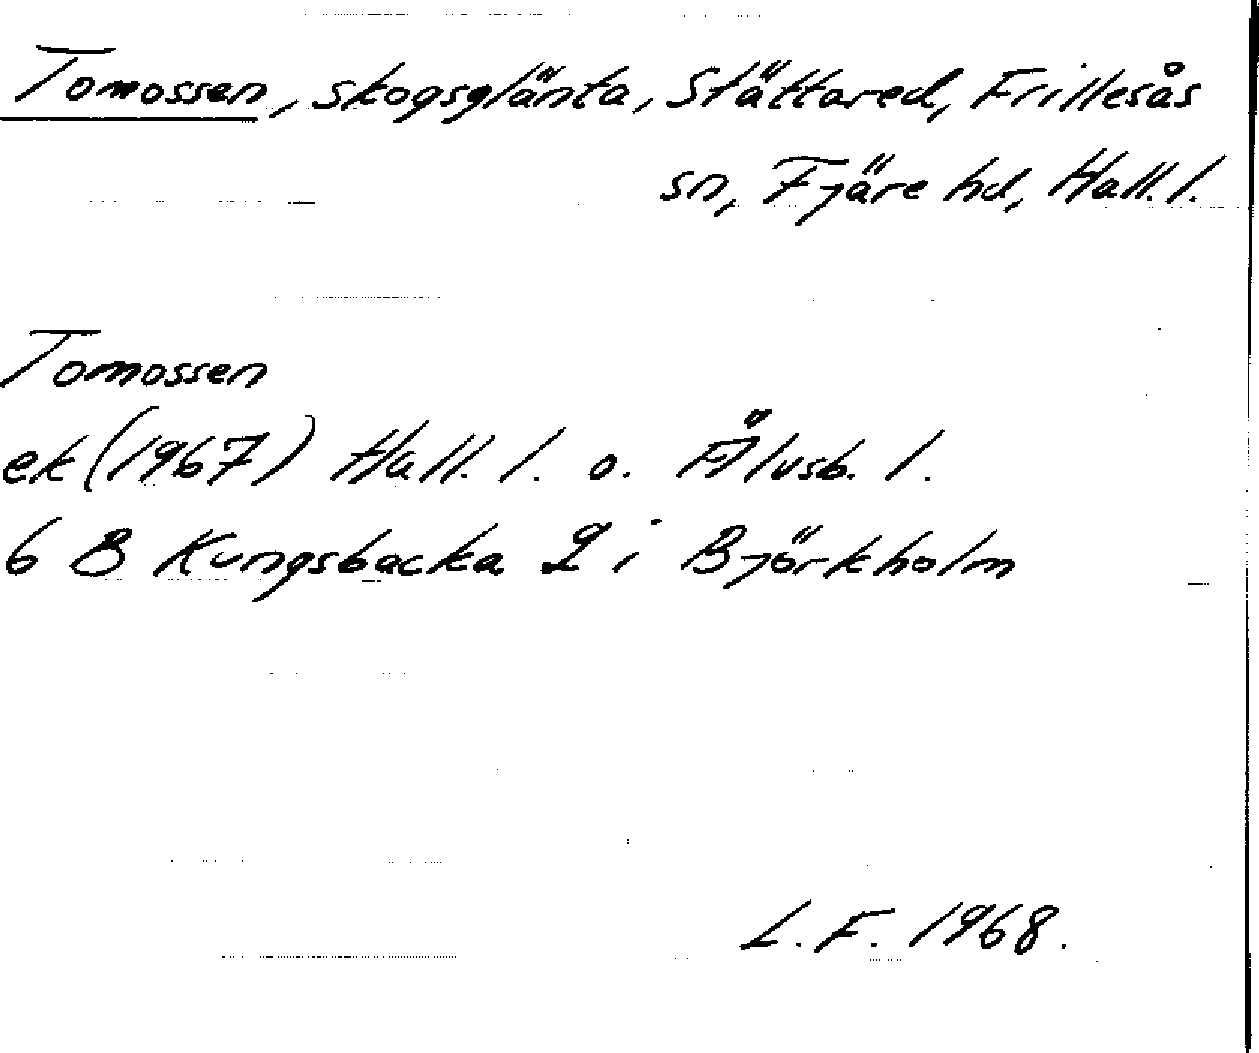 Tomossen, skogsglänta, Stättared, Frillesås
sn, Fjäre hd, Hall. l.
Tomossen
ek (1967) Hall. l. o. Älvsb. l.
6 B Kungsbacka 2 i Björkholm
L. F. 1968.